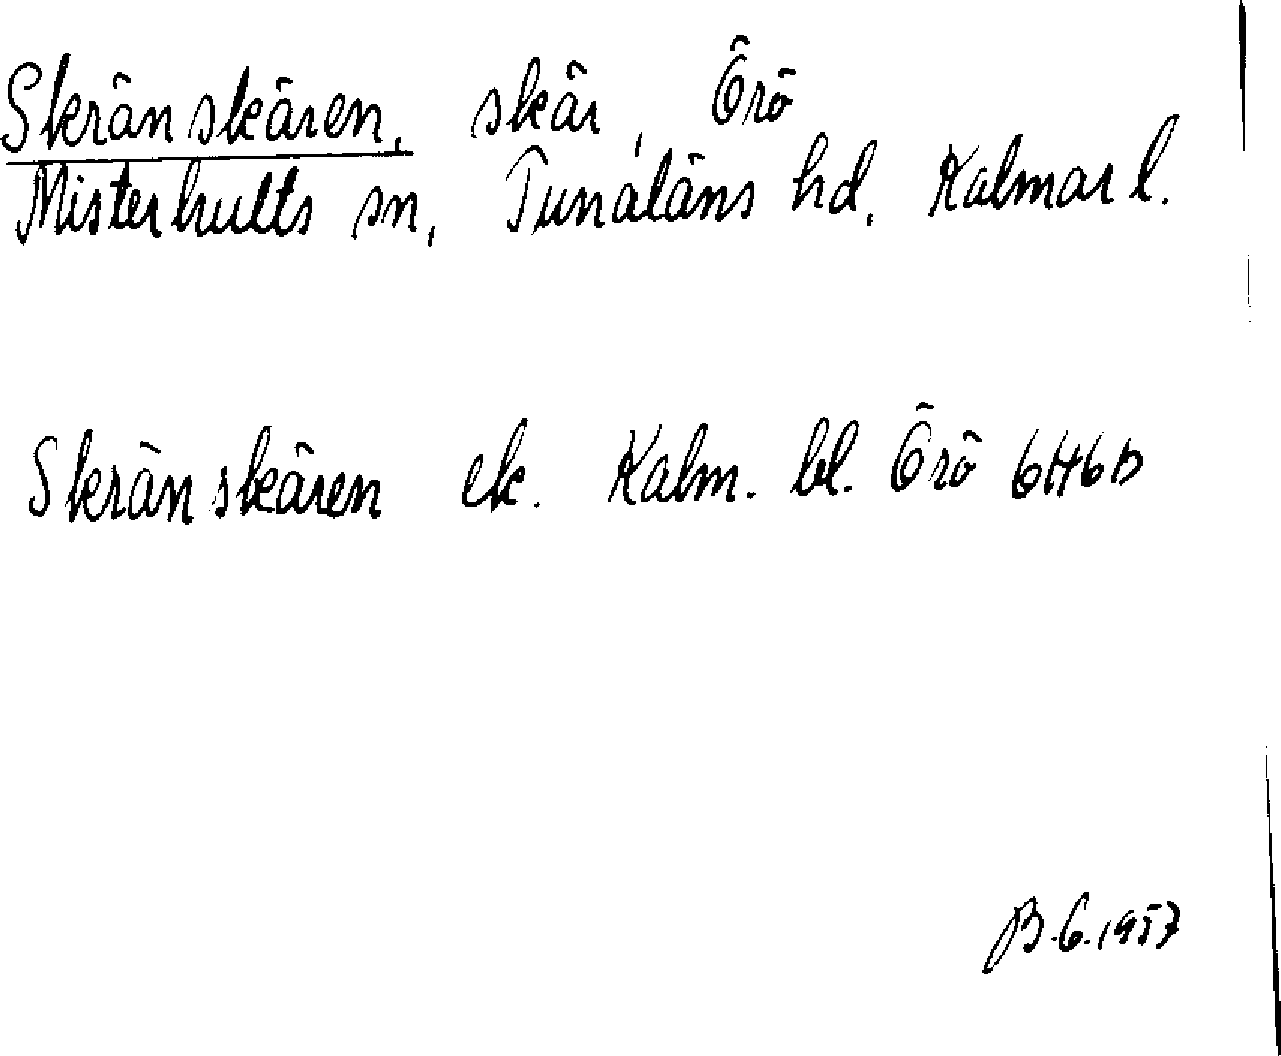 Skränskären, skär, Örö
Misterhults sn, Tunaläns hd, Kalmar l.
Skränskären ek. Kalm. bl. Örö 6H6b
B.G.1957